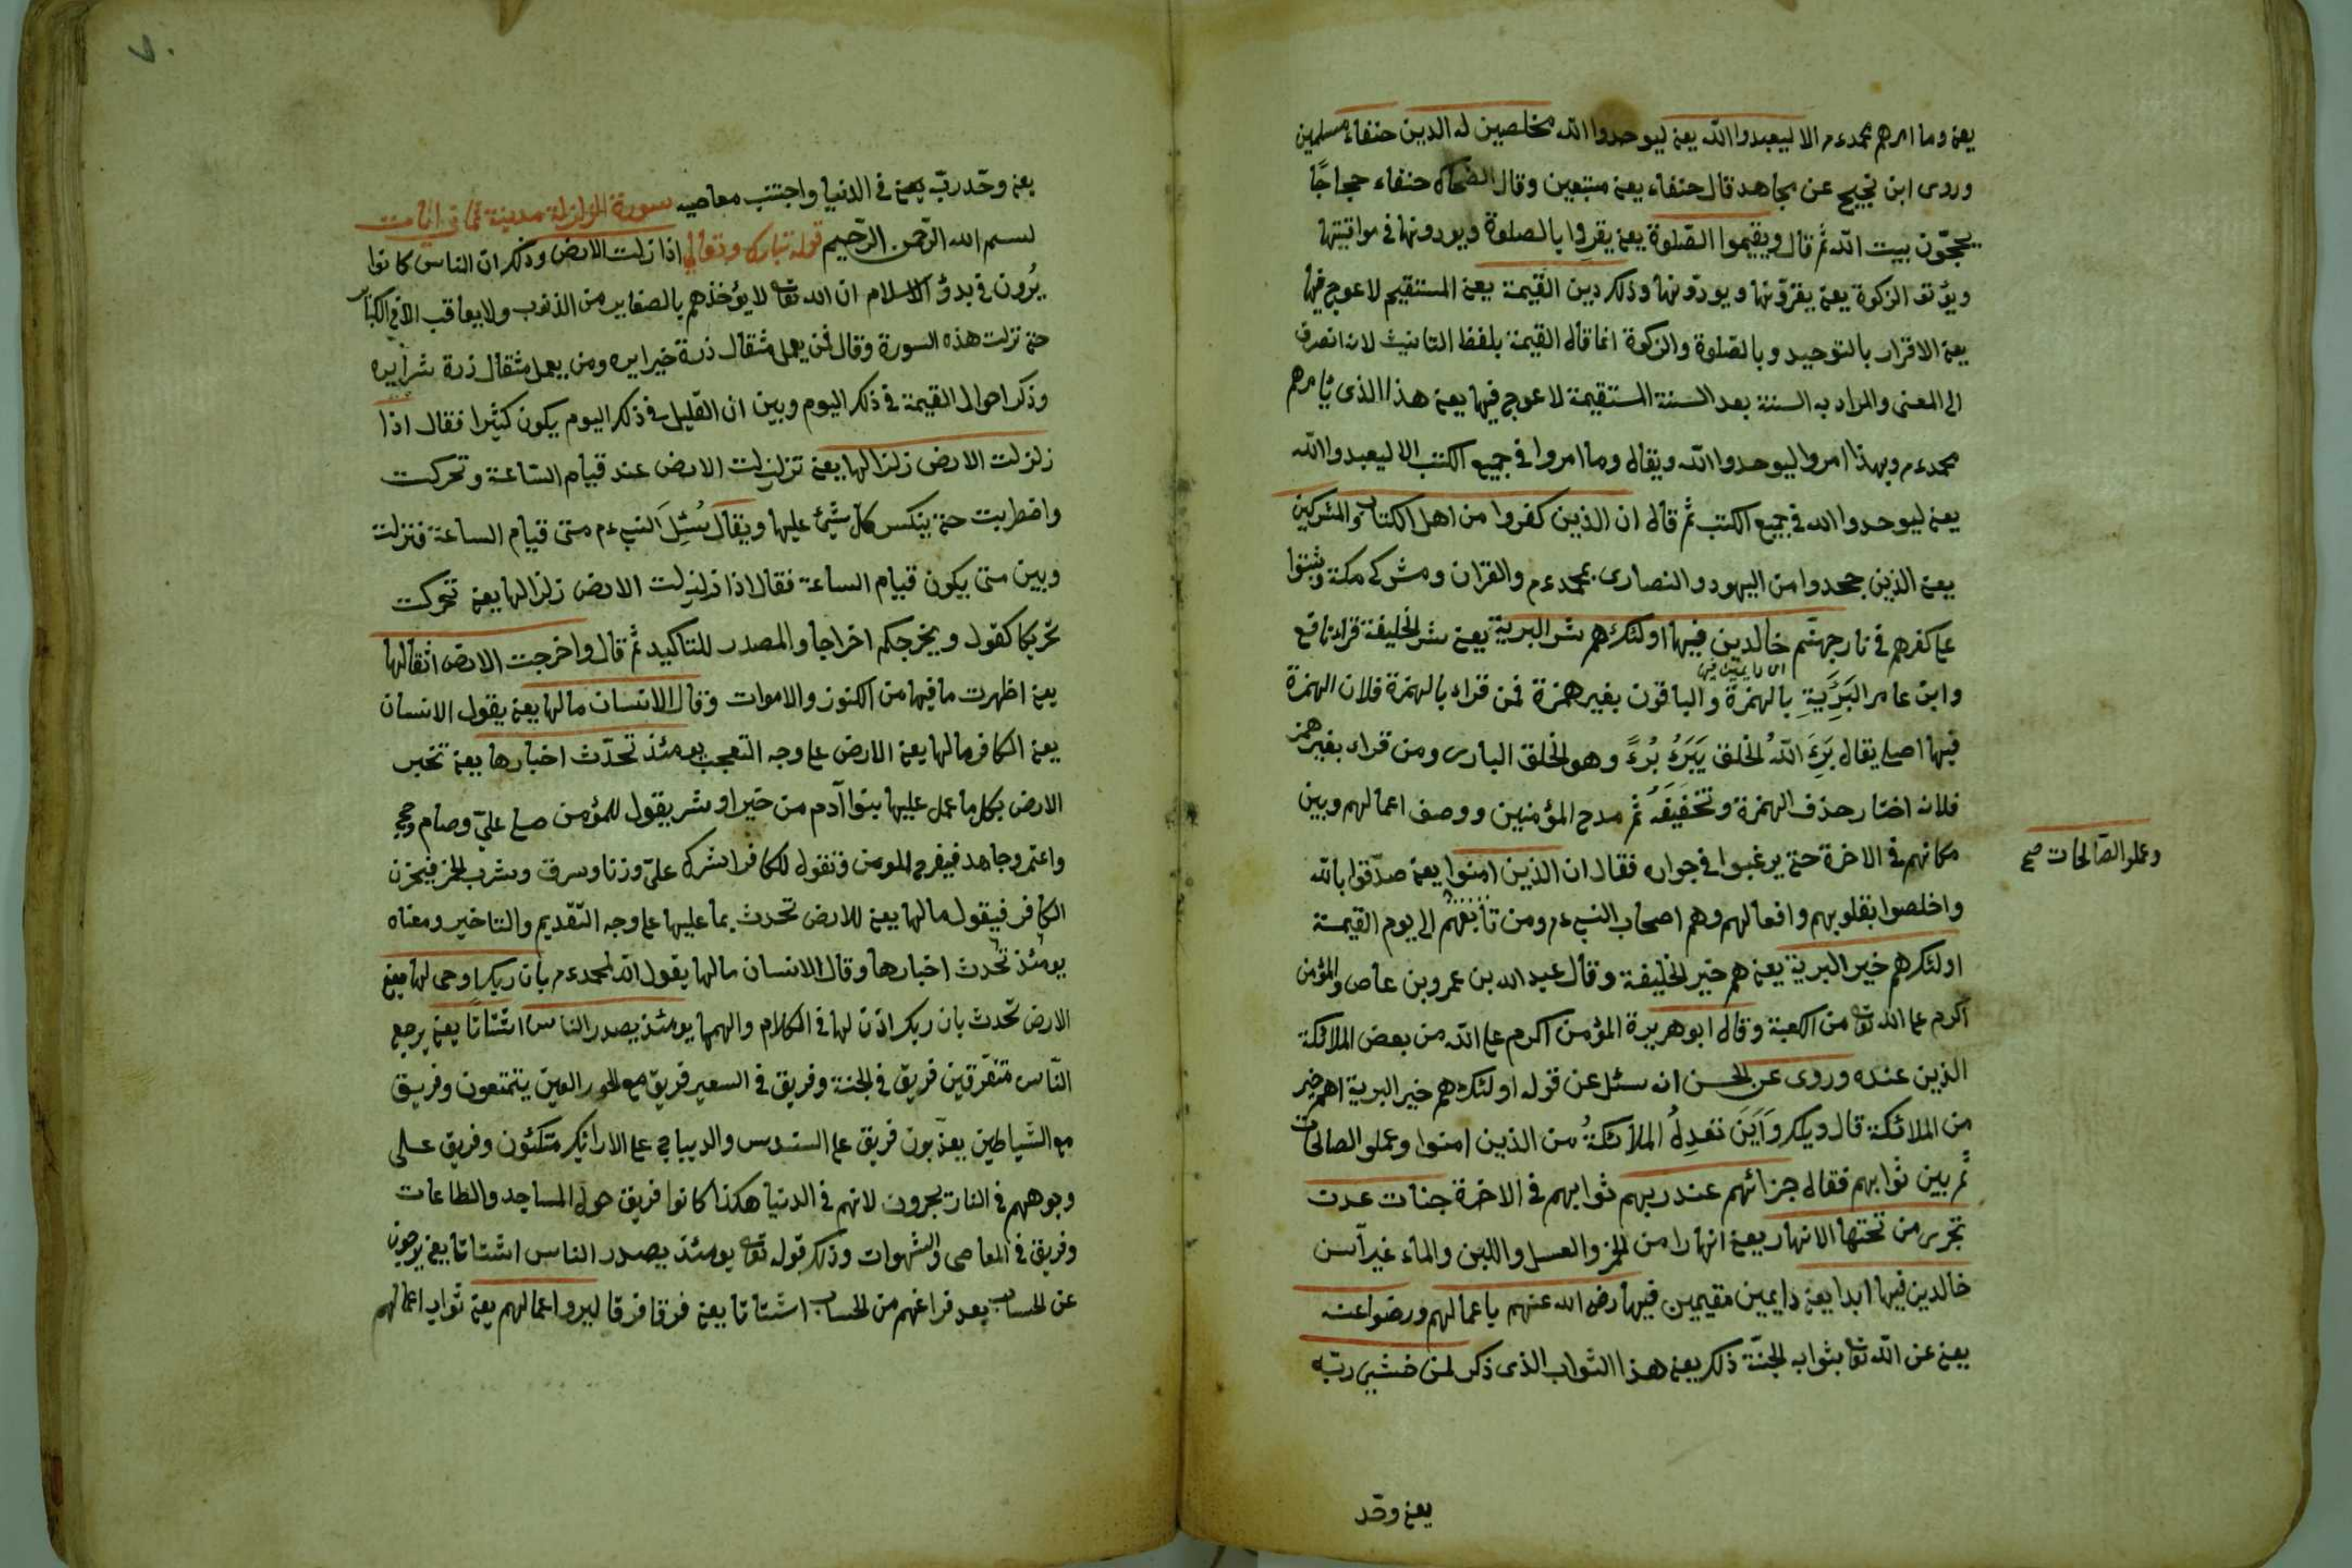 يعنى وما امرهم محمد ءم الا ليعبدوا الله يعنى ليوحدوا الله مخلصين له الدين حنفاء مسلمين
وروى ابن نجيح عن مجاهد قال حنفاء يعنى متبعين وقال الضحاك حنفاء حجاجًا
يحجّون بيت الله ثم قال ويقيموا الصّلوة يعنى يقروا بالصلوة ويودونها فى مواقيتها
ويؤتوا الزكوة يعنى يقرّونها ويودّونها وذلك دين القيمة يعنى المستقيم لا عوج فيها
يعنى الاقرار بالتوحيد وبالصّلوة والزكوة انما قال القيمة بلفظ التانيث لانه انصرف
الى المعنى والمراد به السنة بعد السنة المستقيمة لا عوج فيها يعنى هذا الذى يامرهم
محمد ءم وبهذا امروا ليوحدوا الله ويقال وما امروا فى جميع الكتب الا ليعبدوا الله
يعنى ليوحدوا الله فى جميع الكتب ثم قال ان الذين كفروا من اهل الكتاب والمشركين
يعنى الذين جحدوا من اليهود والنصارى بمحمد ءم والقران ومشركى مكة وثبتوا
على كفرهم فى نار جهنّم خالدين فيها اولئك هم شر البرية يعنى شر الخليفة قراء نافع
وابن عامر البَرِيَةِ بالهمزة والباقون بغير همزة فمن قراء بالهمزة فلان الهمزة
فيها اصلى يقال بَرِءَ اللهُ الخلق يَبَرَءُ بُرءً وهو الخلق البارى ومن قراء بغير همز
فلانه اختار حذف الهمزة وتخفيفه ثم مدح المؤمنين ووصف اعمالهم وبين
مكانهم فى الاخرة حتى يرغبوا فى جواره فقال ان الذين امنوا يعنى صدّقوا بالله
وعملوا الصّالحات صح
واخلصوا بقلوبهم وافعالهم وهم اصحاب النبى ءم ومن تابعهم الى يوم القيمة
اولئك هم خير البرية يعنى هم خير الخليفة وقال عبد الله بن عمرو بن عاص والمؤمن
اكرم على الله تعالى من الكعبة وقال ابو هريرة المؤمن اكرم على الله من بعض الملائكة
الذين عنده وروى عن الحسن انه سئل عن قوله اولئك هم خير البرية اهم خير
من الملائكة قال ويلك وَاَينَ تعدِلُ الملائكةُ من الذين امنوا وعملو الصالحات
ثم بين ثوابهم فقال جزائهم عند ربهم ثوابهم فى الاخرة جنات عدن
تجرى من تحتها الانهار يعنى انهارا من الخمر والعسل واللبن والماء غير آسن
خالدين فيها ابدا يعنى دايمين مقيمين فيها رضى الله عنهم باعمالهم ورضوا عنه
يعنى عن الله تعالى بثوابه الجنّة ذلك يعنى هذا الثواب الذى ذكر لمن خشى ربّه
يعنى وحّد
يعنى وحّد ربّه يعنى فى الدنيا واجتنب معاصيه سورة الزلزلة مدينة ثمانى ايات
بسم الله الرحمن الرّحيم قوله تبارك وتعالى اذا زلت الارض وذلك ان الناس كانوا
يرُون فى بدؤ الاسلام ان الله تعالى لا يؤخذهم بالصغاير من الذنوب ولا يعاقب الا فى الكبائر
حتى نزلت هذه السورة وقال فمن يعمل مثقال ذرة خيرا يره ومن يعمل مثقال ذرة شرا يره
وذكر احوال القيمة فى ذلك اليوم وبين ان القليل فى ذلك اليوم يكون كثيرا فقال اذا
زلزلت الارض زلزالها يعنى تزلزلت الارض عند قيام السّاعة وتحركت
واضطربت حتى ينكس كل شئ عليها ويقال سُئِلَ النبى ءم متى قيام الساعة فنزلت
وبين متى يكون قيام الساعة فقال اذا زلزلت الارض زلزالها يعنى تحركت
تحريكا كقوله ويخرجكم اخراجا والمصدر للتاكيد ثم قال واخرجت الارض اثقالها
يعنى اظهرت ما فيها من الكنوز والاموات وقال الانسان مالها يعنى يقول الانسان
يعنى الكافر مالها يعنى الارض على وجه التعجب يومئذ تحدّث اخبارها يعنى تخبر
الارض بكل ما عمل عليها بنوا آدم من خير او شر يقول للمؤمن صلى علىّ وصام وحج
واعتمر وجاهد فيفرح المومن وتقول للكافر اشرك علىّ وزنا وسرق وشرب الخمر فيحزن
الكافر فيقول مالها يعنى للارض تحدث بما عليها على وجه التّقديم والتاخير ومعناه
يومئذ تحدث اخبارها وقال الانسان مالها يقول الله لمحمد ءم بان ربك اوحى لها يعنى
الارض تحّدث بان ربك اذن لها فى الكلام والهمها يومئذ يصدر الناس اشتاتًا يعنى يرجع
النّاس متفرّقين فريق فى الجنة وفريق فى السعير فريق مع الحور العين يتمتعون وفريق
مع الشّياطين يعذّبون فريق على السندس والديباج على الارائك متكئون وفريق على
وجوههم فى النار يجرون لانهم فى الدنيا هكذا كانوا فريق حول المساجد والطاعات
وفريق فى المعاصى والشهوات وذلك قوله تعالى يومئذ يصدر الناس اشتاتا يعنى يرجعون
عن الحساب بعد فراغهم من الحساب اشتاتا يعنى فرقا فرقا ليروا اعمالهم يعنى ثواب اعمالهم